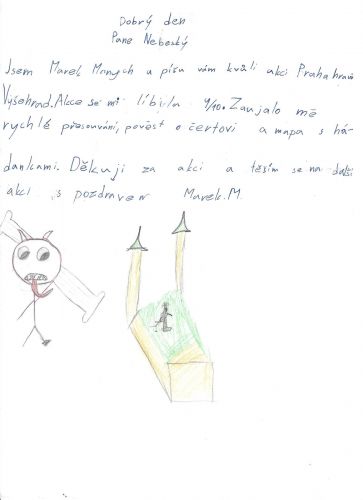 Dobrý den
Pane Nebeský
Jsem Marek Mrnych a píšu vám kvůli akci Praha hravě
Vyšehrad. Akce se mi líbila 9/10. Zaujalo mě
rychlé přesouvání, pověst o čertovi a mapa s há-
dankami. Děkuji za akci a těším se na další
akci s pozdravem Marek. M.